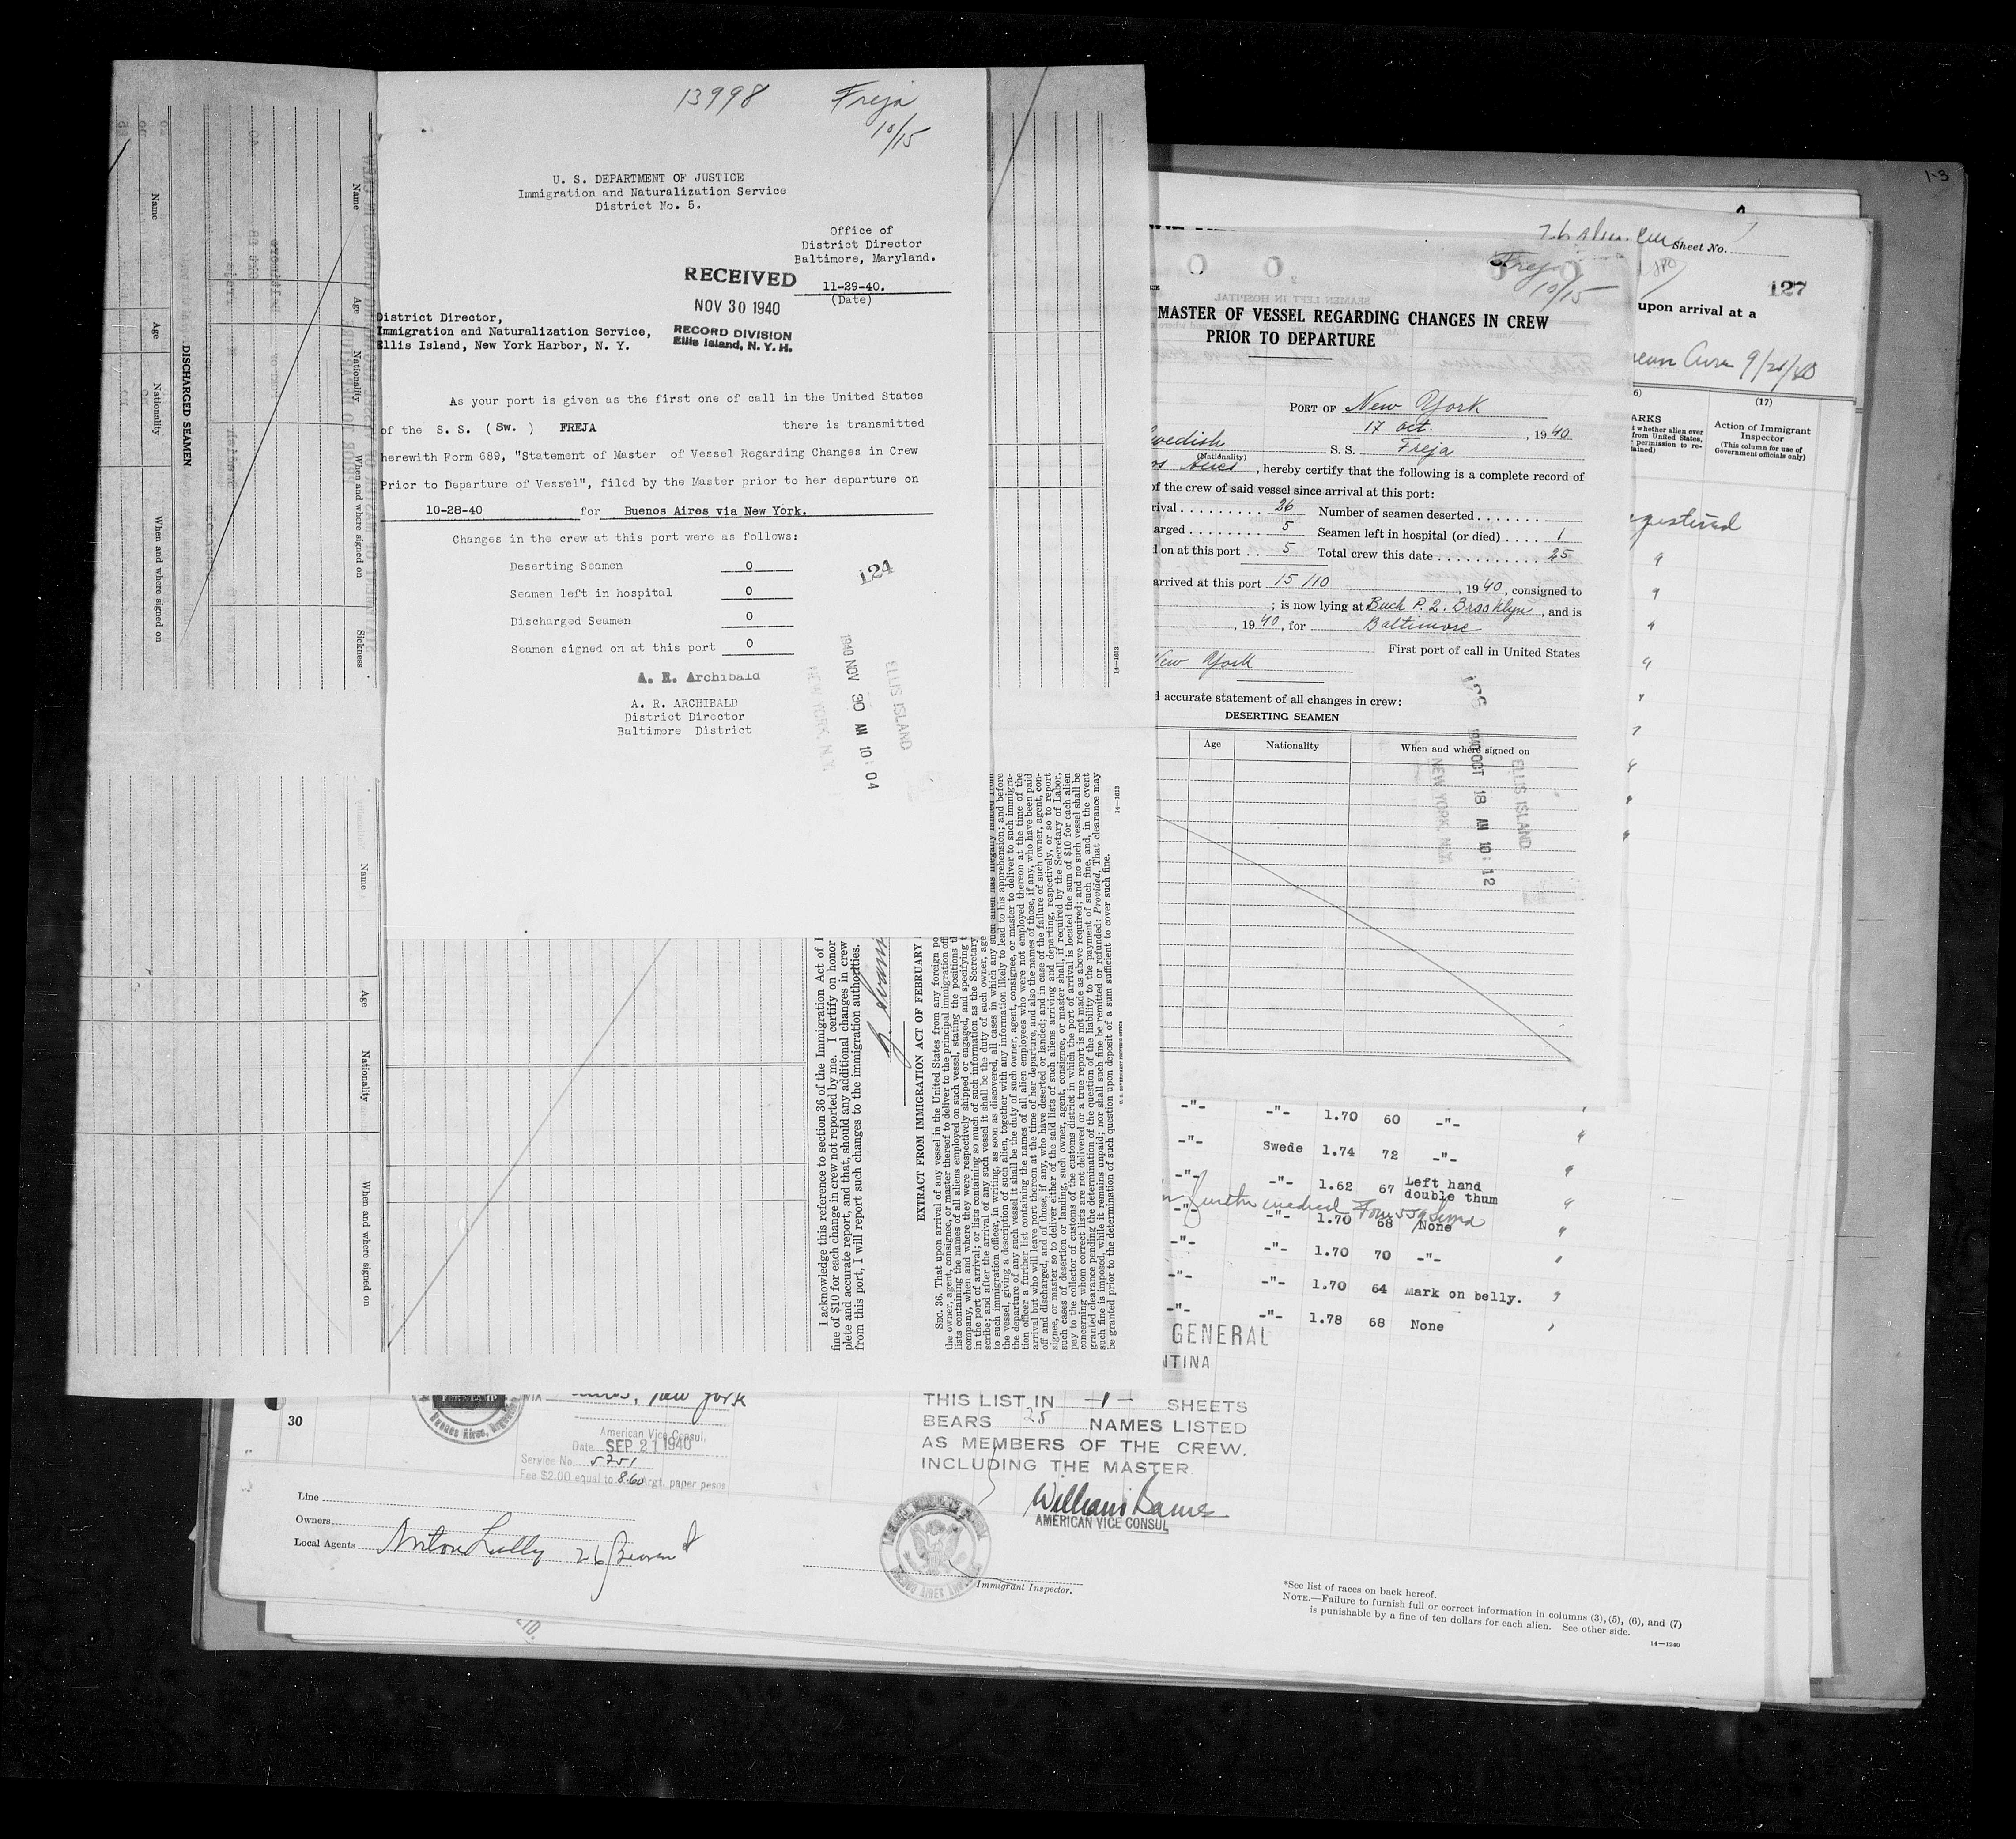 13998
Freja
10/15
U. S. DEPARTMENT OF JUSTICE
Immigration and Naturalization Service
District No. 5.
Office of
District Director
Baltimore, Maryland.
RECEIVED
11-29-40.
(Date)
NOV 30 1940
RECORD DIVISION
Ellis Island, N. Y. H.
District Director,
Immigration and Naturalization Service,
Ellis Island, New York Harbor, N. Y.
As your port is given as the first one of call in the United States
of the S. S. (Sw. ) FREJA there is transmitted
herewith Form 689, "Statement of Master of Vessel Regarding Changes in Crew
Prior to Departure of Vessel", filed by the Master prior to her departure on
10-28-40 for Buenos Aires via New York.
Changes in the crew at this port were as follows:
Deserting Seamen 0
Seamen left in hospital 0
Discharged Seamen 0
Seamen signed on at this port 0
124
A. R. Archibald
A. R. ARCHIBALD
District Director
Baltimore District
ELLIS ISLAND
1940 NOV 30 AM 10:04
NEW YORK, N.Y.
DISCHARGED SEAMEN
Name
Age
Nationality
When and where signed on
Name
Age
Nationality
When and where signed on
Sickness
Name
Age
Nationality
When and where signed on
14—1613
I acknowledge this reference to section 36 of the Immigration Act of 1
fine of $10 for each change in crew not reported by me. I certify on honor
plete and accurate report, and that, should any additional changes in crew
from this port, I will report such changes to the immigration authorities.
EXTRACT FROM IMMIGRATION ACT OF FEBRUARY
SEC. 36. That upon arrival of any vessel in the United States from any foreign po
the owner, agent, consignee, or master thereof to deliver to the principal immigration off
lists containing the names of all aliens employed on such vessel, stating the positions t
company, when and where they were respectively shipped or engaged, and specifying t
in the port of arrival; or lists containing so much of such information as the Secretary
scribe; and after the arrival of any such vessel it shall be the duty of such owner, age
to such immigration officer, in writing, as soon as discovered, all cases in which any such alien has illegally landed from
the vessel, giving a description of such alien, together with any information likely to lead to his apprehension; and before
the departure of any such vessel it shall be the duty of such owner, agent, consignee, or master to deliver to such immigra-
tion officer a further list containing the names of all alien employees who were not employed thereon at the time of the
arrival but who will leave port thereon at the time of her departure, and also the names of those, if any, who have been paid
off and discharged, and of those, if any, who have deserted or landed; and in case of the failure of such owner, agent, con-
signee, or master so to deliver either of the said lists of such aliens arriving and departing, respectively, or so to report
such cases of desertion or landing, such owner, agent, consignee, or master shall, if required by the Secretary of Labor,
pay to the collector of customs of the customs district in which the port of arrival is located the sum of $10 for each alien
concerning whom correct lists are not delivered or a true report is not made as above required; and no such vessel shall be
granted clearance pending the determination of the question of the liability to the payment of such fine, and, in the event
such fine is imposed, while it remains unpaid; nor shall such fine be remitted or refunded: Provided, That clearance may
be granted prior to the determination of such question upon deposit of a sum sufficient to cover such fine.
14—1613
1-3
Sheet No.
127
Freja
10/15
upon arrival at a
9/21/40
MASTER OF VESSEL REGARDING CHANGES IN CREW
PRIOR TO DEPARTURE
PORT OF New York
17 Oct. , 1940
Swedish S. S. Freja
(Nationality)
, hereby certify that the following is a complete record of
of the crew of said vessel since arrival at this port:
rival 26 Number of seamen deserted
arged 5 Seamen left in hospital (or died) 1
d on at this port 5 Total crew this date 25
arrived at this port 15/10 , 1940, consigned to
; is now lying at Buch P. 2. Brooklyn, and is
, 1940, for Baltimore
First port of call in United States
New York
d accurate statement of all changes in crew:
DESERTING SEAMEN
Age
Nationality
When and where signed on
ELLIS ISLAND
1940 OCT 18 AM 10:12
NEW YORK, N.Y.
(17)
ARKS
t whether alien ever
from United States,
permission to re-
tained)
Action of Immigrant
Inspector
(This column for use of
Government officials only)
-"- -"- 1.70 60 -"-
-"- Swede 1.74 72 -"-
-"- -"- 1.62 67 Left hand
double thum
further medical
-"- -"- 1.70 68 None
-"- -"- 1.70 70 -"-
-"- -"- 1.70 64 Mark on belly.
-"- -"- 1.78 68 None
GENERAL
NTINA
30
VIA
New York
American Vice Consul,
Date SEP 21 1940
Service No. 5751
Fee $2.00 equal to 8.60 Argt. paper pesos
THIS LIST IN 1 SHEETS
BEARS 25 NAMES LISTED
AS MEMBERS OF THE CREW.
INCLUDING THE MASTER.
William Barnes
AMERICAN VICE CONSUL
Line
Owners
Local Agents
Immigrant Inspector.
*See list of races on back hereof.
NOTE.—Failure to furnish full or correct information in columns (3), (5), (6), and (7)
is punishable by a fine of ten dollars for each alien. See other side.
14—1240